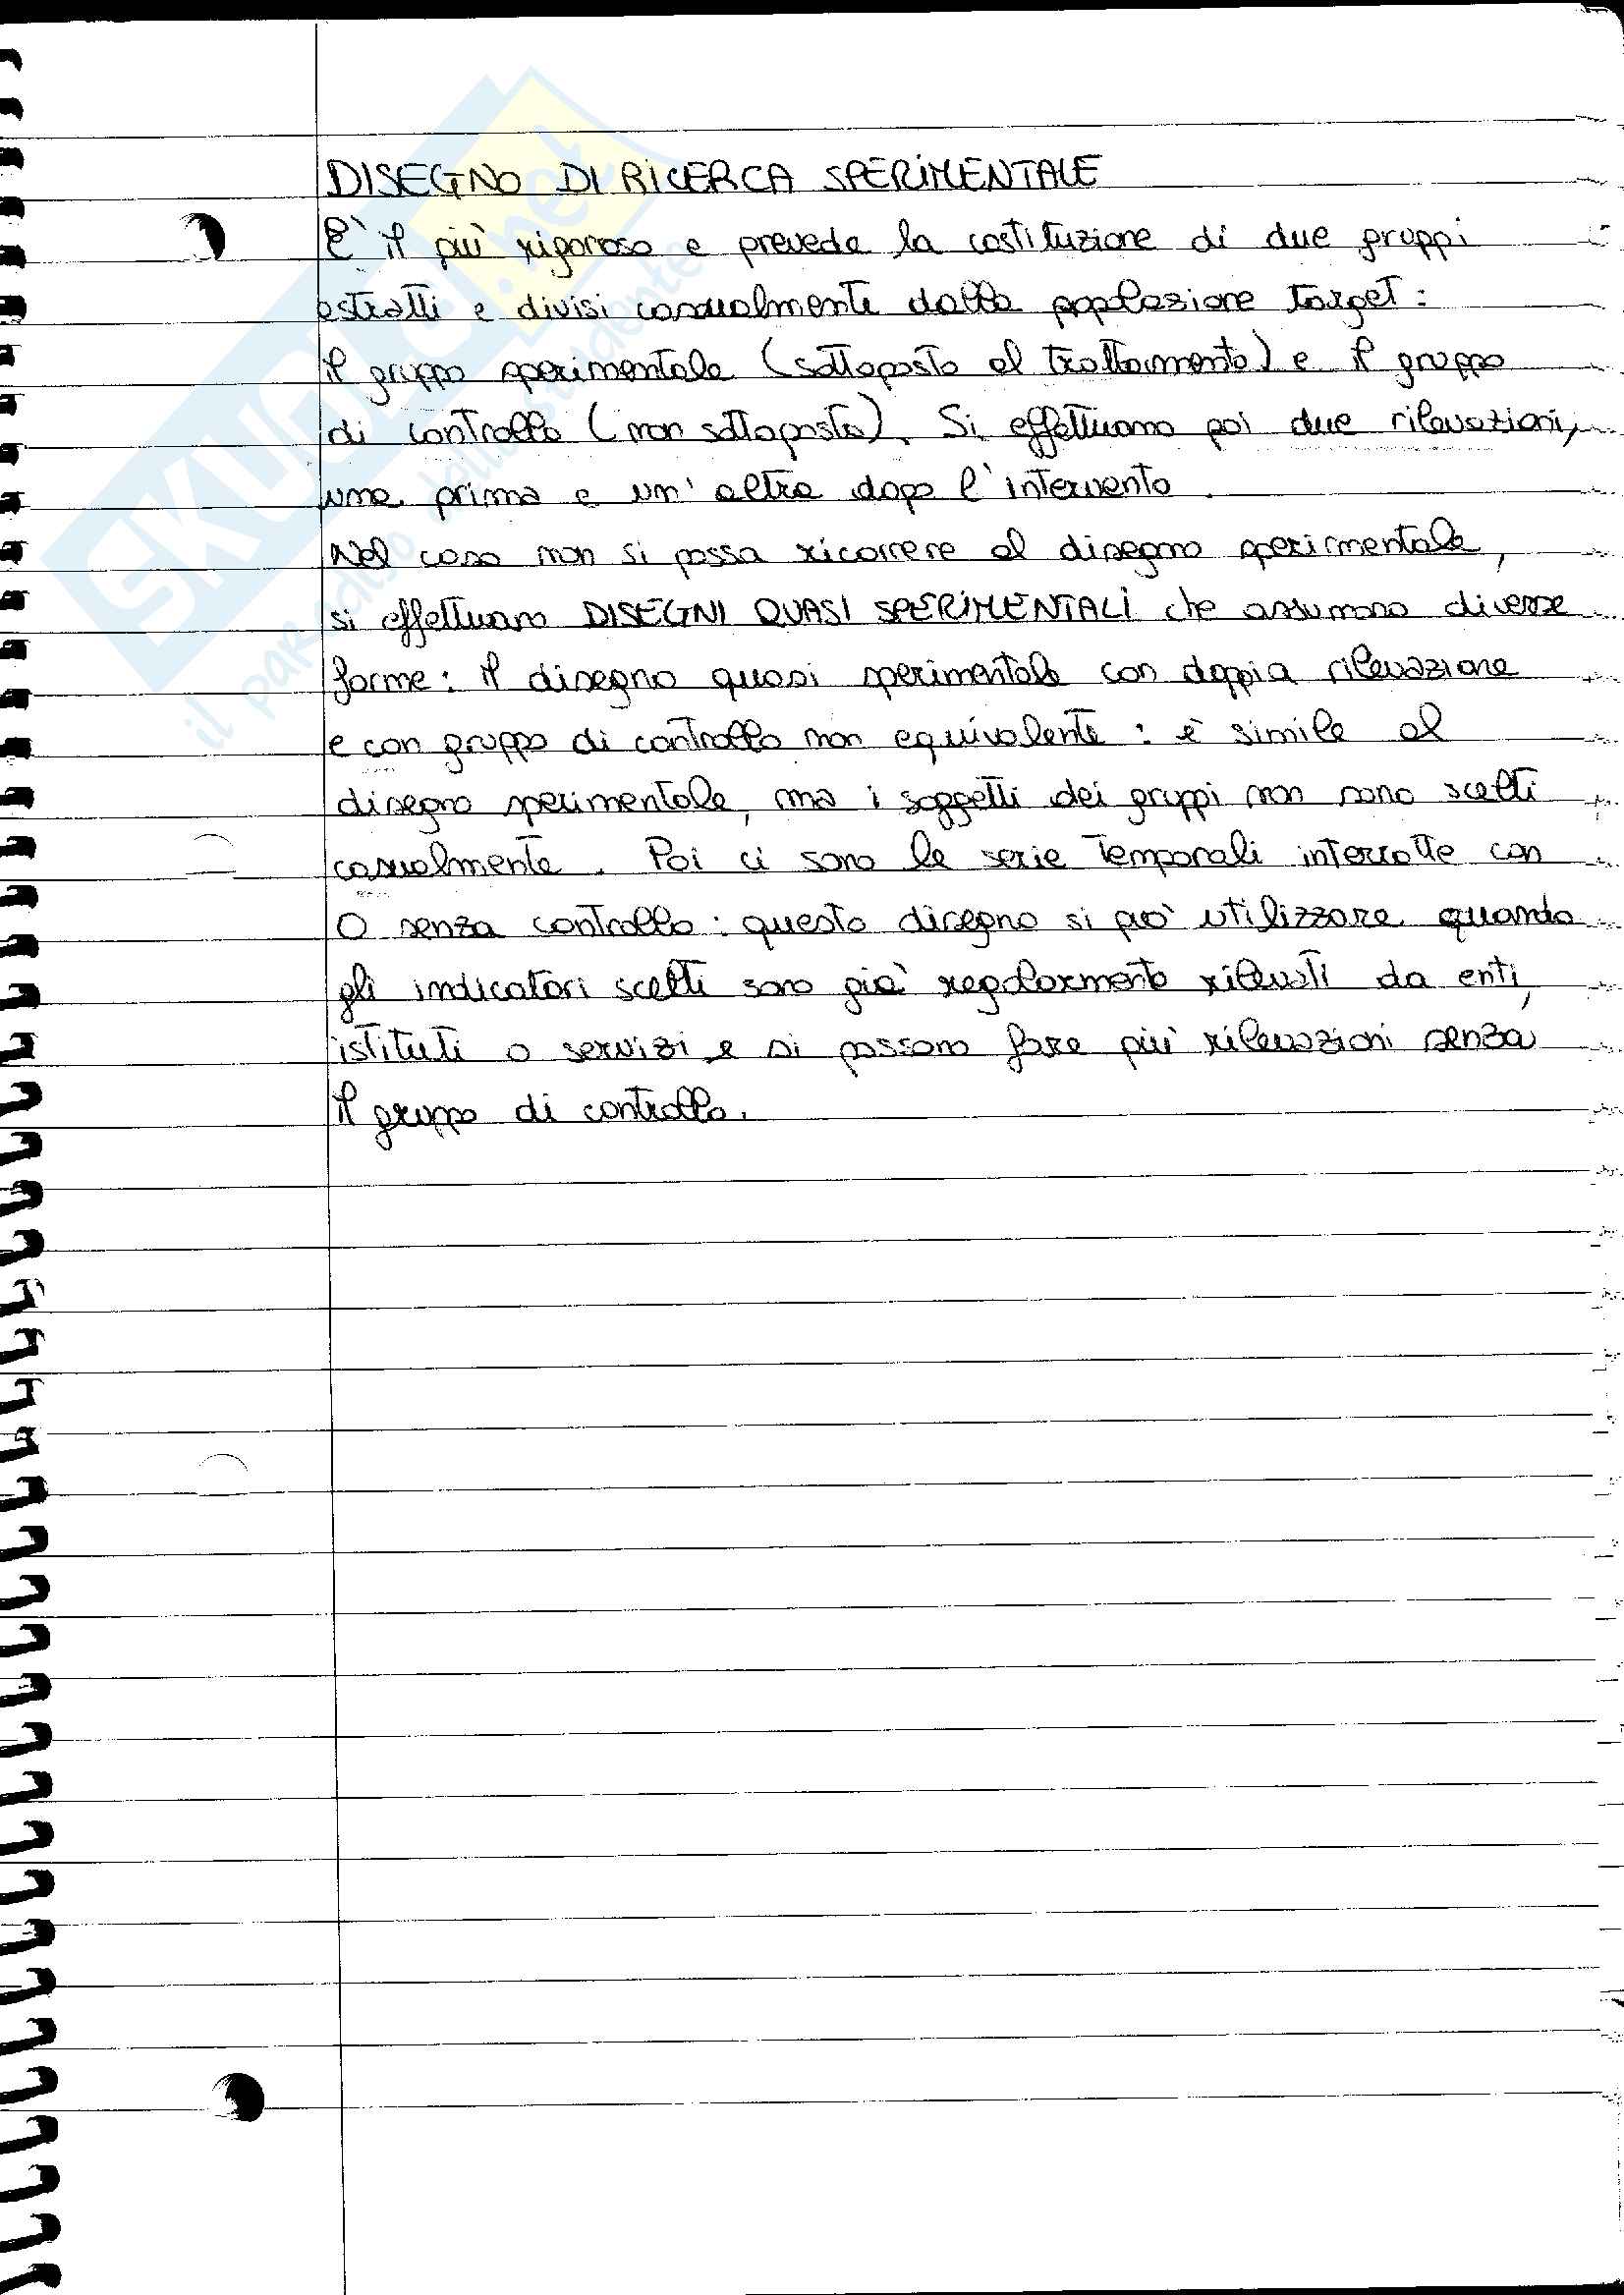 DISEGNO DI RICERCA SPERIMENTALE
E' il più rigoroso e prevede la costituzione di due gruppi
estratti e divisi casualmente dalla popolazione target:
il gruppo sperimentale (sottoposto al trattamento) e il gruppo
di controllo (non sottoposto). Si effettuano poi due rilevazioni,
una prima e un'altra dopo l'intervento.
Nel caso non si possa ricorrere al disegno sperimentale,
si effettuano DISEGNI QUASI SPERIMENTALI che assumono diverse
forme: il disegno quasi sperimentale con doppia rilevazione
e con gruppo di controllo non equivalente: è simile al
disegno sperimentale, ma i soggetti dei gruppi non sono scelti
casualmente. Poi ci sono le serie temporali interrotte con
o senza controllo: questo disegno si può utilizzare quando
gli indicatori scelti sono già regolarmente rilevati da enti,
istituti o servizi e si possono fare più rilevazioni senza
il gruppo di controllo.
SKUOLA.net
il paradiso dello studente